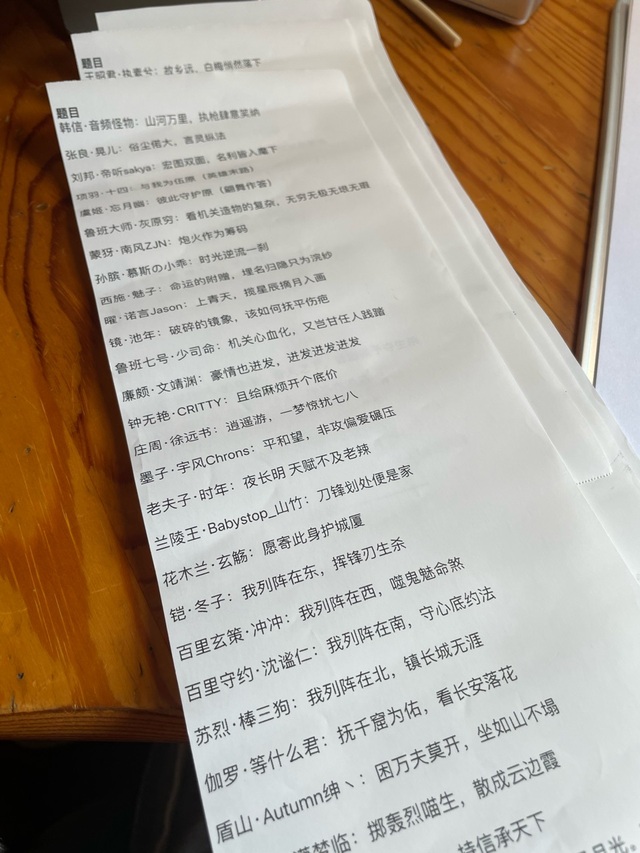 题目
王昭君·执素兮：故乡远，白梅悄然落下
题目
韩信·音频怪物：山河万里，执枪肆意笑纳
张良·晃儿：俗尘偌大，言灵纵法
刘邦·帝听sakya：宏图双面，名利皆入麾下
项羽·十四：与我为伍原（英雄末路）
虞姬·忘月幽：彼此守护原（翩舞作答）
鲁班大师·灰原穷：看机关造物的复杂，无穷无极无垠无暇
蒙犽·南风ZJN：炮火作为筹码
孙膑·慕斯の小乖：时光逆流一刹
西施·魅子：命运的附赠，埋名归隐只为浣纱
曜·诺言Jason：上青天，揽星辰摘月入画
镜·池年：破碎的镜象，该如何抚平伤疤
鲁班七号·少司命：机关心血化，又岂甘任人践踏
廉颇·文靖渊：豪情也迸发，迸发迸发迸发
钟无艳·CRITTY：且给麻烦开个底价
庄周·徐远书：逍遥游，一梦惊扰七八
墨子·宇风Chrons：平和望，非攻偏爱碾压
老夫子·时年：夜长明 天赋不及老辣
兰陵王·Babystop_山竹：刀锋划处便是家
花木兰·玄觞：愿寄此身护城厦
铠·冬子：我列阵在东，挥锋刃生杀
百里玄策·冲冲：我列阵在西，噬鬼魅命煞
百里守约·沈谧仁：我列阵在南，守心底约法
苏烈·棒三狗：我列阵在北，镇长城无涯
伽罗·等什么君：抚千窟为佑，看长安落花
盾山·Autumn绅丶：困万夫莫开，坐如山不塌
梦临：掷轰烈喵生，散成云边霞
持信承天下
月光，